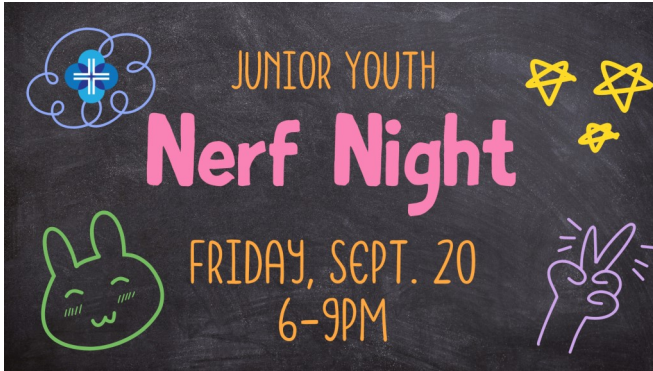 JUNIOR YOUTH
Nerf Night
FRIDAY, SEPT. 20
6-9PM